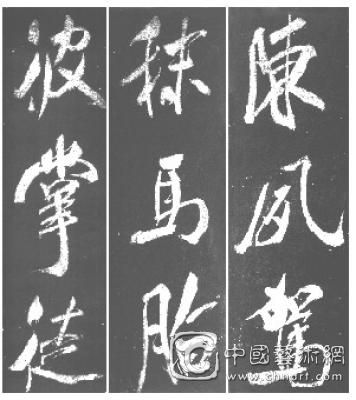 陳夙駕
秣馬脂
彼掌徒
中國藝術網
www.chnart.com